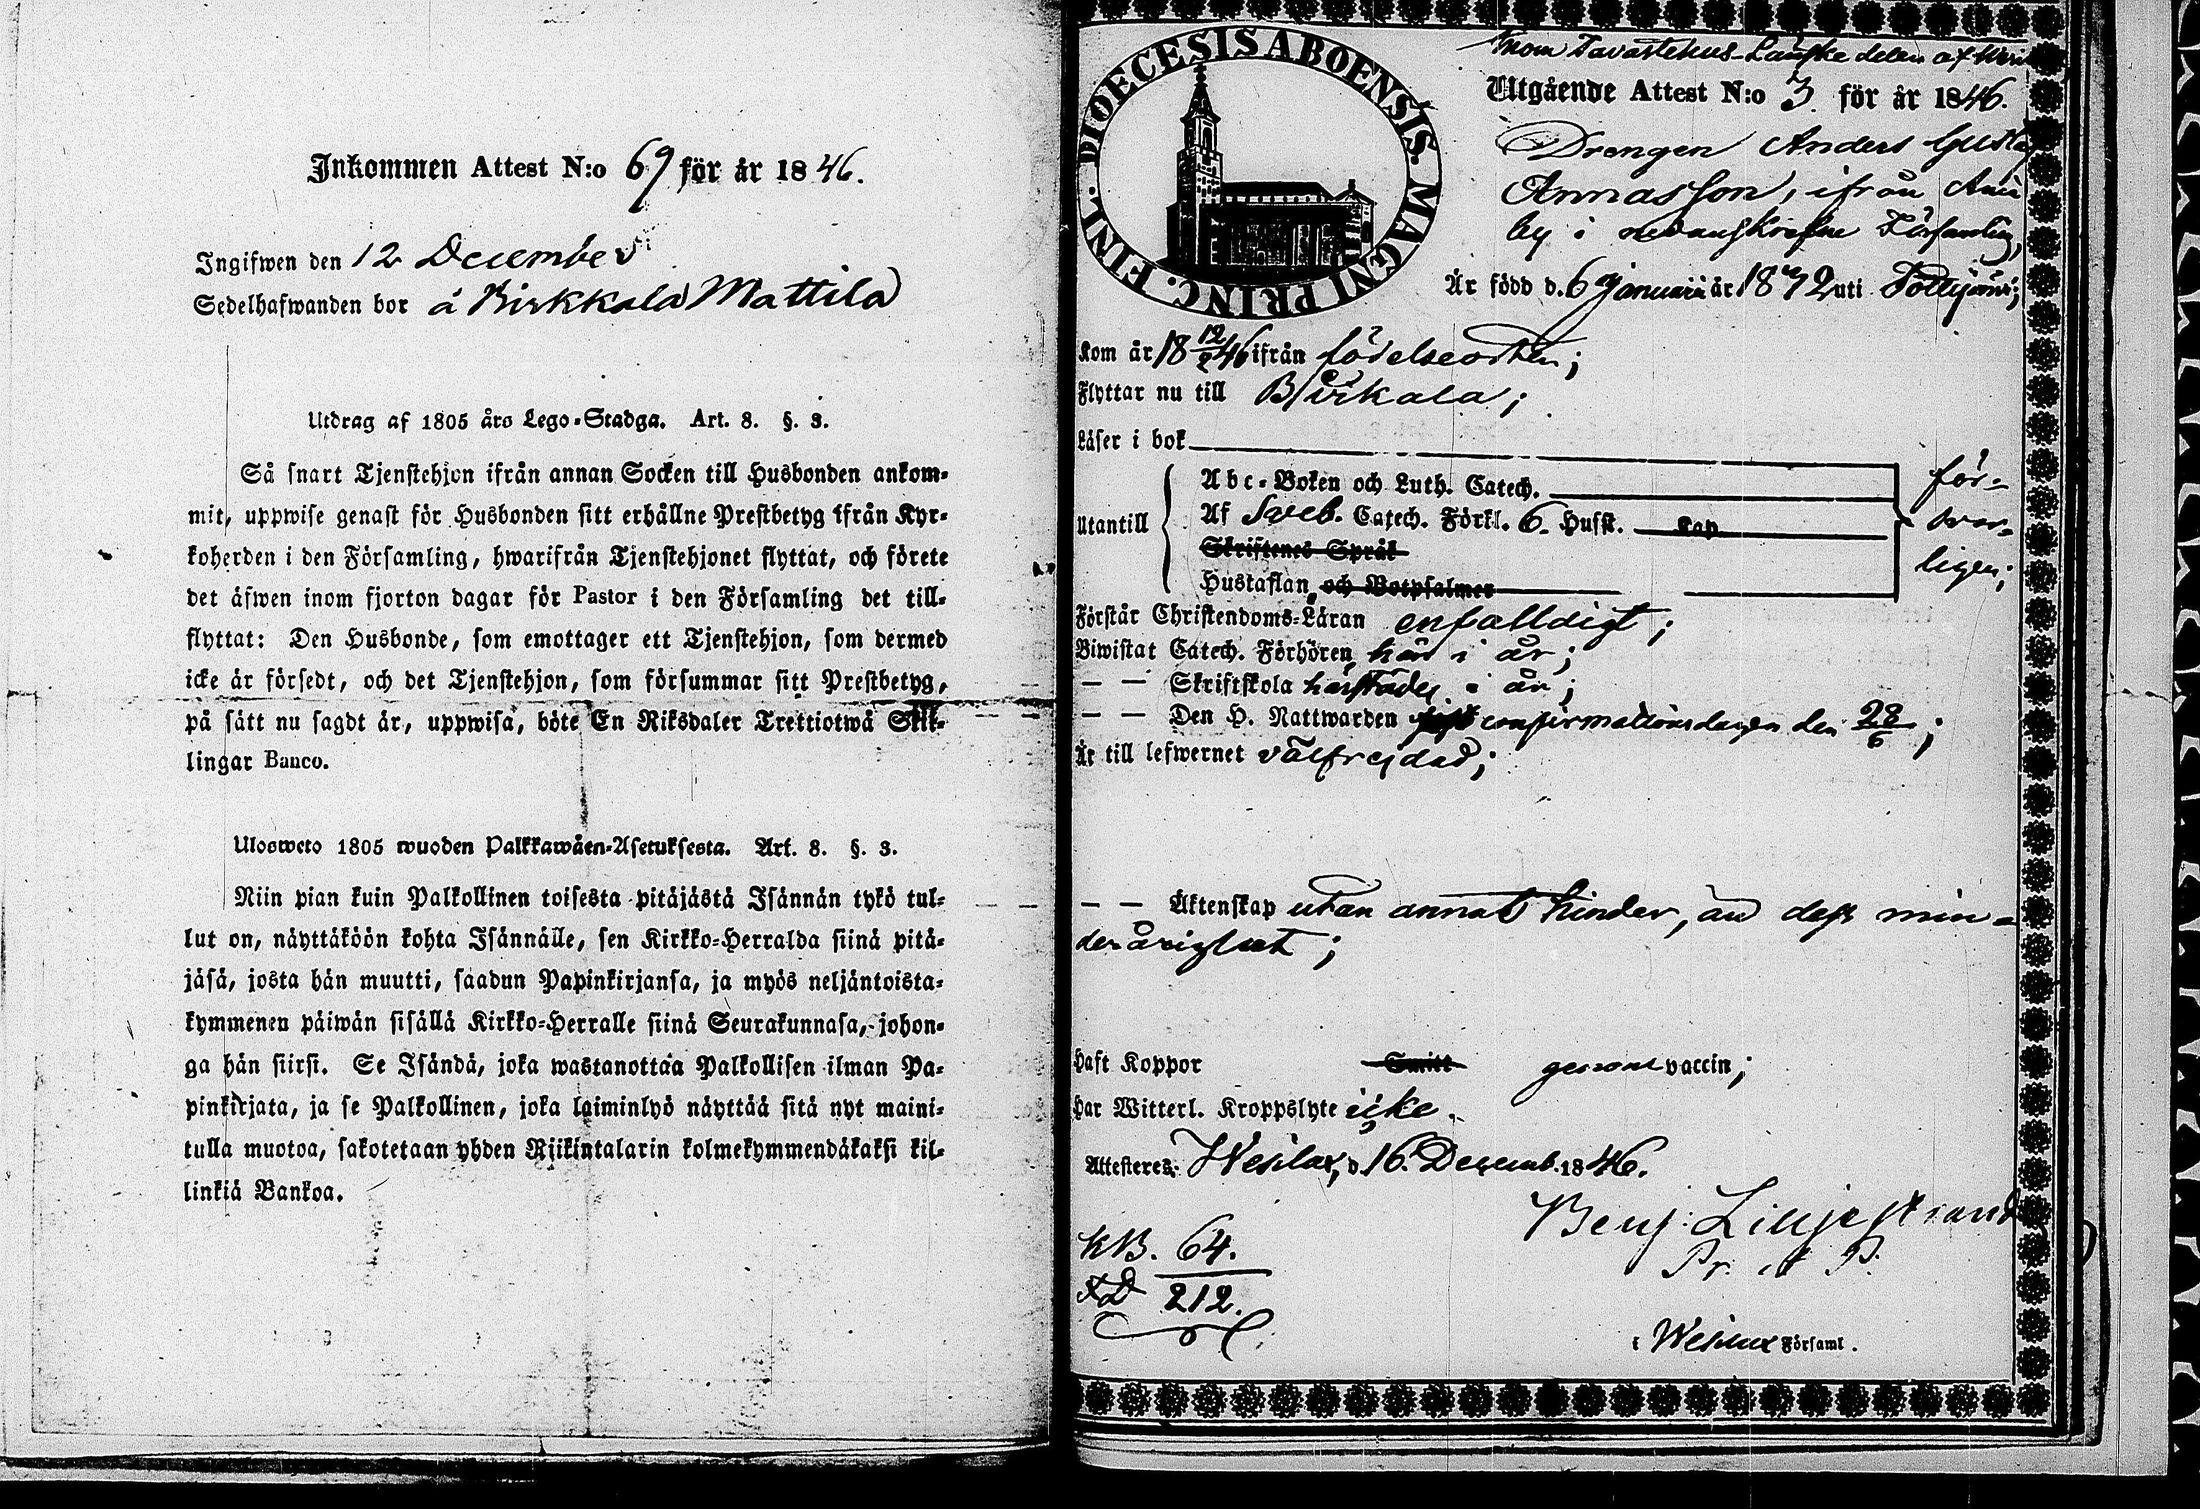 Inkommen Attest N:o 69 för år 1846.
Ingifwen den 12 December
Sedelhafwanden bor å Birkkala Mattila
Utdrag af 1805 års Lego-Stadga. Art. 8. §. 3.
Så snart Tjenstehjon ifrån annan Socken till Husbonden ankom-
mit, uppwise genast för Husbonden sitt erhållne Prestbetyg ifrån Kyr-
koherden i den Församling, hwarifrån Tjenstehjonet flyttat, och förete
det äfwen inom fjorton dagar för Pastor i den Församling det till-
flyttat: Den Husbonde, som emottager ett Tjenstehjon, som dermed
icke är försedt, och det Tjenstehjon, som försummar sitt Prestbetyg,
på sätt nu sagdt är, uppwisa, böte En Riksdaler Trettiotwå Skil-
lingar Banco.
Ulosweto 1805 wuoden Palkkawäen-Asetuksesta. Art. 8. §. 3.
Niin pian kuin Palkollinen toisesta pitäjästä Isännän tykö tul-
lut on, näyttäköön kohta Isännälle, sen Kirkko-Herralda siinä pitä-
jäsä, josta hän muutti, saadun Papinkirjansa, ja myös neljäntoista-
kymmenen päiwän sisällä Kirkko-Herralle siinä Seurakunnasa, johon-
ga hän siirsi. Se Isändä, joka wastanottaa Palkollisen ilman Pa-
pinkirjata, ja se Palkollinen, joka laiminlyö näyttää sitä nyt maini-
tulla muotoa, sakotetaan yhden Riikintalarin kolmekymmendäkaksi kil-
linkiä Bankoa.
DIOECESIS ABOENSIS. MAGNI PRINC. FINL.
Inom Tavastehus-Länske delen af
Utgående Attest N:o 3 för år 1846.
Drengen Anders Gustaf
Annasson, ifrån
by i Församling,
Är född d. 6 Januarii år 18 uti Tottijärvi;
Kom år 18 12/2 46 ifrån födelseorten;
Flyttar nu till Birkala;
Läser i bok
Abc-Boken och Luth. Catech. för-
Utantill Af Sveb. Catech. Förkl. 6 Hufst. Kap. svar-
Skriftenes Språk ligen;
Hustaflan och Botpsalmer
Förstår Christendoms-Läran enfalldigt;
Biwistat Catech. Förhören här i år;
— — Skriftskola härstädes i år;
— — Den H. Nattwarden confirmationsdagen den 28/6;
Är till lefwernet välfrejdad;
— — Äktenskap utan annat hinder, än dess min-
derårighet;
Haft Koppor Smitt genom vaccin;
Har Witterl. Kroppslyte icke.
Attesteres: Wesilax, d. 16. Decemb. 1846.
Benj: Liljestrand
Pr. et P.
KB. 64.
212.
i Wesilax Församl.